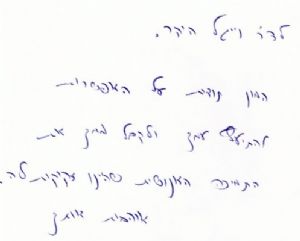 לד״ר וייגל היקר.
המון תודות על האפשרות
להתייעץ עמך ולקבל ממך את
התמיכה האנושית שהינו זקוקות לה.
אוהבות אותך